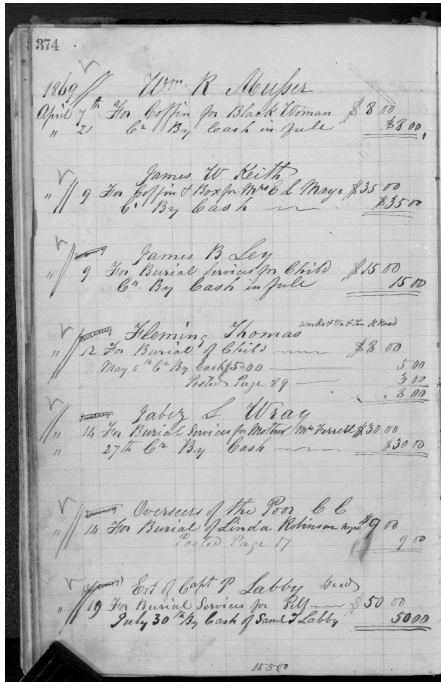 374
1869 Wm R Musser
April 7th For Coffin for Black Woman $8.00
" 21 Cr By Cash in full $8.00
James W Keith
" 9 For Coffin & Box for Mrs C L Mays $35.00
Cr By Cash $35.00
James B Ley
" 9 For Burial Services for Child $15.00
Cr By Cash in full 15.00
Fleming Thomas works & Va & Ten R Road
" 12 For Burial of Child $8.00
May 5th Cr By Cash $5.00 5.00
Posted Page 89 3.00
8.00
Jabez L Wray
" 14 For Burial Services for Mother Mrs Ferrell $30.00
" 27th Cr By Cash $30.00
Overseers of the Poor C C
" 14 For Burial of Linda Robinson negro $9.00
Posted Page 17 9.00
Est of Capt P Labby Decd
" 19 For Burial Services for Self $50.00
July 30th By Cash of Saml T Labby 50.00
155.00